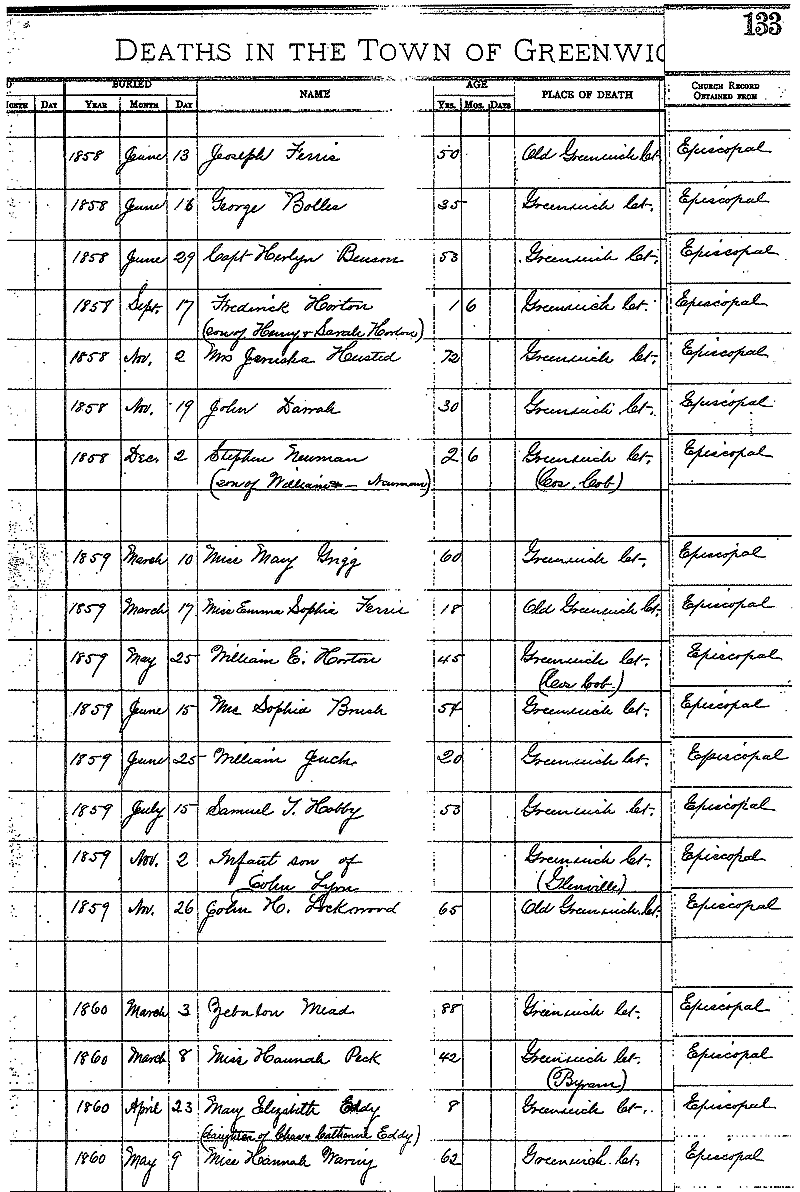 133
DEATHS IN THE TOWN OF GREENWIC
BURIED AGE
MONTH DAY YEAR MONTH DAY NAME YRS. MOS. DAYS PLACE OF DEATH CHURCH RECORD OBTAINED FROM
1858 June 13 Joseph Ferris 50 Old Greenwich Ct. Episcopal
1858 June 16 George Bolles 35 Greenwich Ct. Episcopal
1858 June 29 Capt Benson 53 Greenwich Ct. Episcopal
1858 Sept. 17 Frederick Horton 1 6 Greenwich Ct. Episcopal
(son of Henry + Sarah Horton)
1858 Nov. 2 Mrs Jerusha Husted 72 Greenwich Ct. Episcopal
1858 Nov. 19 John Darrah 30 Greenwich Ct. Episcopal
1858 Dec. 2 Stephen Newman 2 6 Greenwich Ct. Episcopal
(son of William + — Newman) (Cos Cob)
1859 March 10 Miss Mary Grigg 60 Greenwich Ct. Episcopal
1859 March 17 Miss Emma Sophia Ferris 18 Old Greenwich Ct. Episcopal
1859 May 25 William E. Horton 45 Greenwich Ct. Episcopal
(Cos Cob.)
1859 June 15 Mrs Sophia Brush 54 Greenwich Ct. Episcopal
1859 June 25 William 20 Greenwich Ct. Episcopal
1859 July 15 Samuel T. Hobby 53 Greenwich Ct. Episcopal
1859 Nov. 2 Infant son of Greenwich Ct. Episcopal
John Lyon (Glenville)
1859 Nov. 26 John H. Lockwood 65 Old Greenwich Ct. Episcopal
1860 March 3 Zebulon Mead 88 Greenwich Ct. Episcopal
1860 March 8 Miss Hannah Peck 42 Greenwich Ct. Episcopal
(Byram)
1860 April 23 Mary Elizabeth Eddy 8 Greenwich Ct. Episcopal
(daughter of Chas + Catharine Eddy)
1860 May 9 Miss Hannah Waring 62 Greenwich Ct. Episcopal